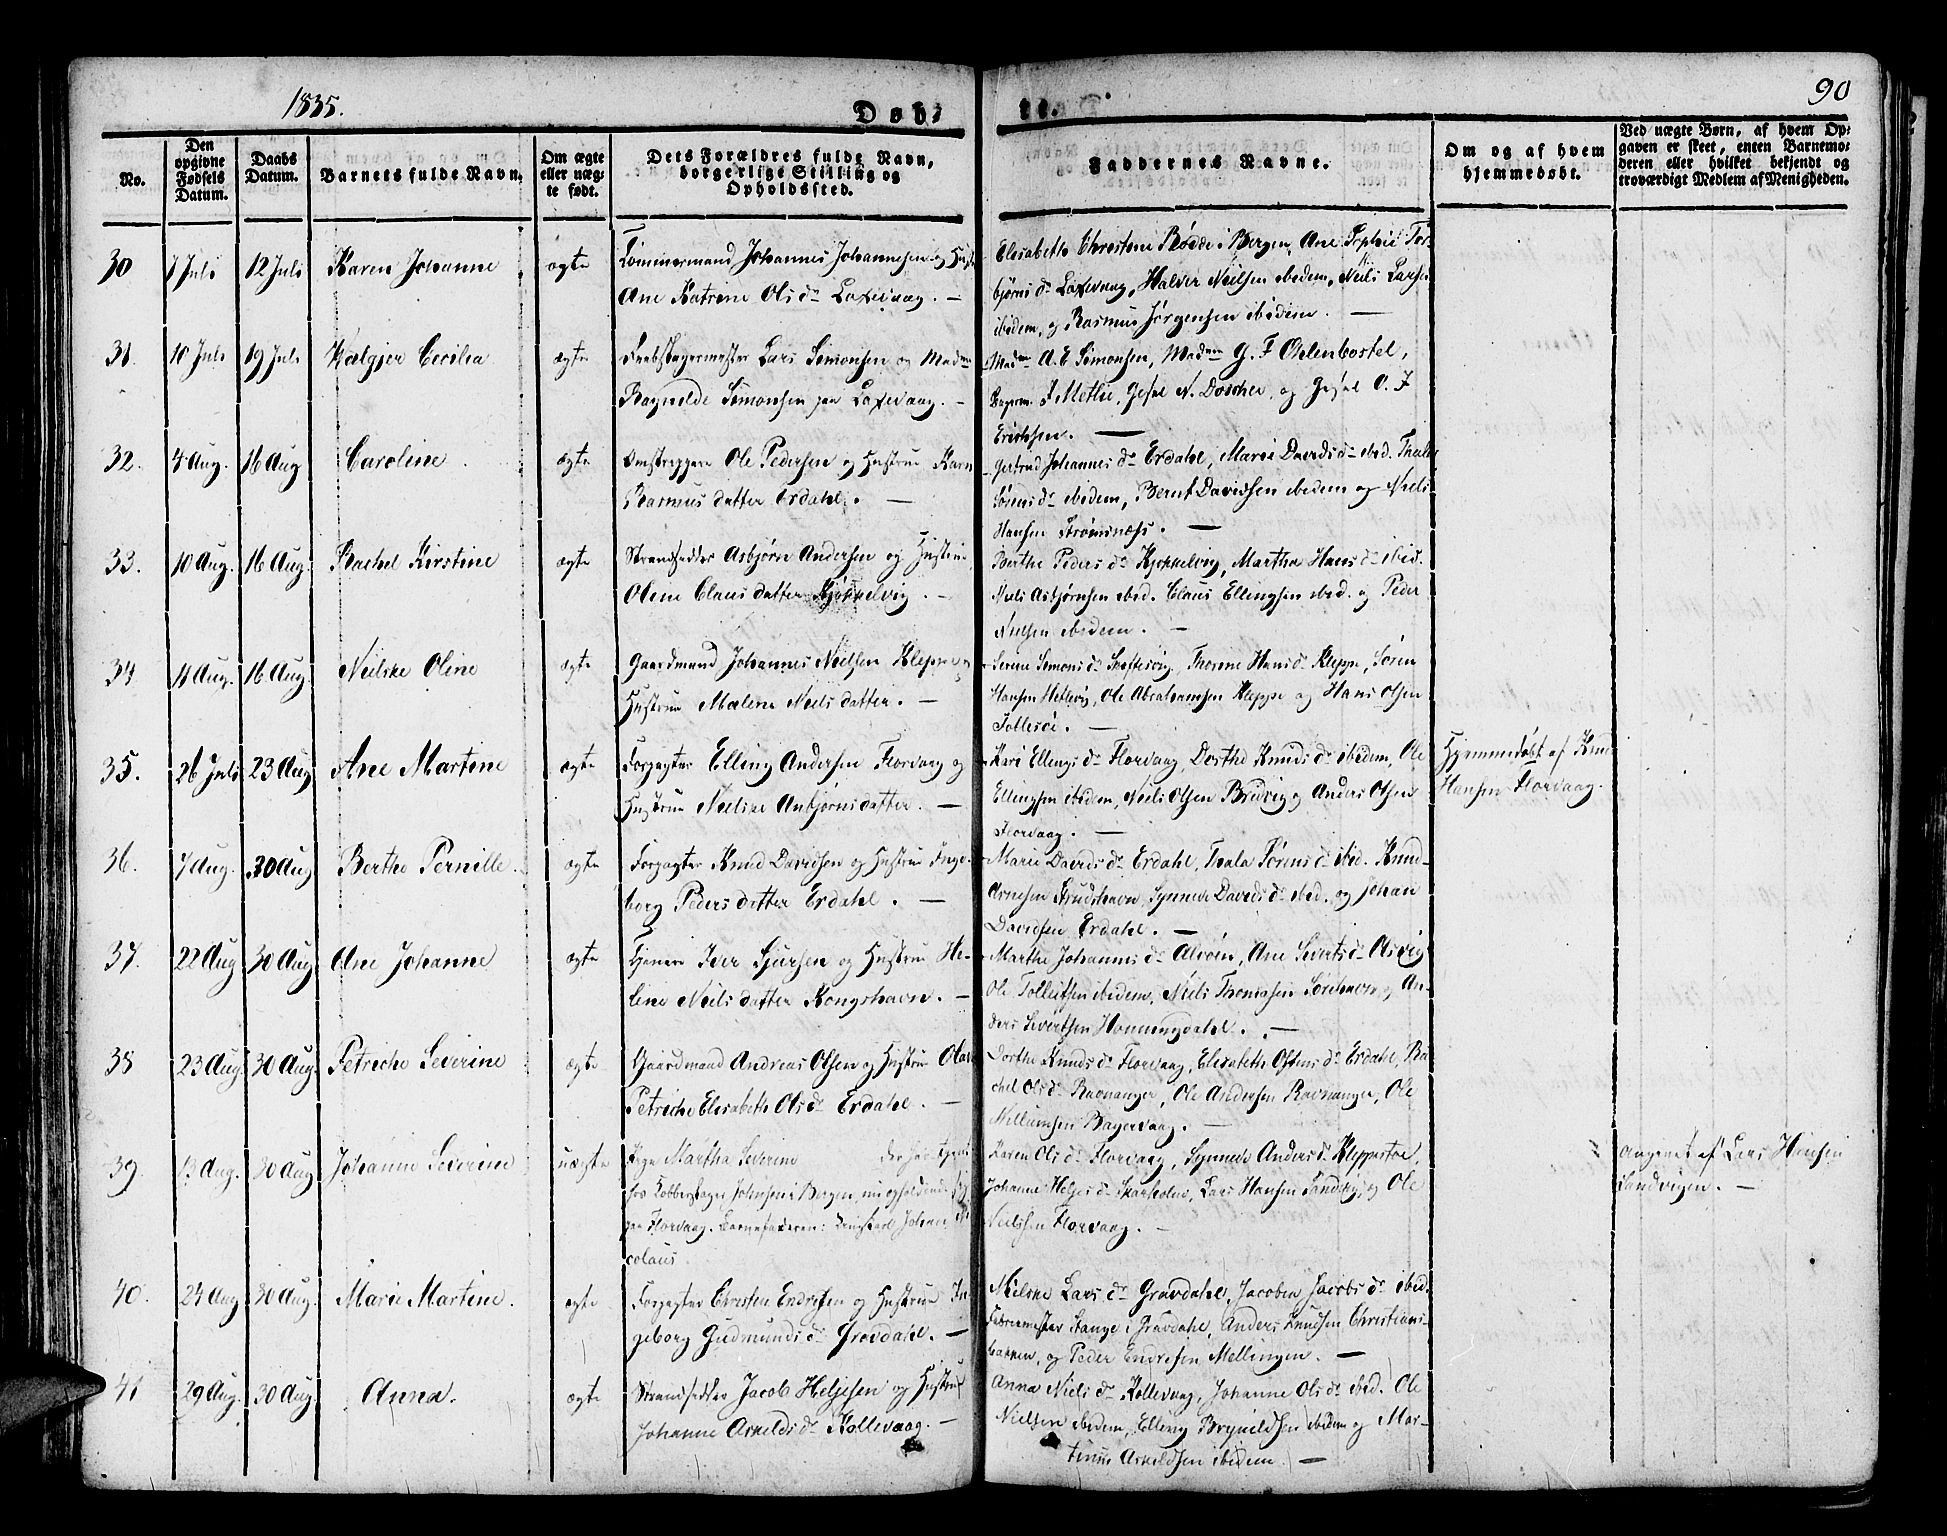 1835.
Døb-
te.
90
No.
Den opgivne Fødsels Datum.
Daabs Datum.
Barnets fulde Navn.
Om ægte eller uæg-te født.
Dets Forældres fulde Navn, borgerlige Stilling og Opholdssted.
Faddernes Navne.
Om og af hvem hjemmedøbt.
Ved uægte Børn, af hvem Op-gaven er skeet, enten Barnemo-deren eller hvilket bekjendt og troværdigt Medlem af Menigheden.
30 7 Juli 12 Juli Karen Johanne ægte Tømmermand Johannes Johannesen og Hustr
Ane Katrine Ols dr Laxevaag. —
Elisabeth Christine Rødde i Bergen, Ane Sophie Tor-
bjørns dr Laxevaag, Halver Neilsen ibidem, Neils Larsen
ibidem, og Rasmus Jørgensen ibidem. —
31. 10 Juli 19 Juli Cecilia ægte Lars Simonsen og Madme
Ragnilde Simonsen paa Laxevaag. —
Madme A. E Simonsen, Madme G. F Ohlenbostel,
J Metlie, N. Doscher, og O. J
Erichsen. —
32. 4 Aug. 16 Aug Caroline ægte Ole Pedersen og Hustrue Karn
Rasmus datter Erdahl. —
Gertrud Johannes dr Erdahl, Marie Davids dr ibid. Thale
Sørens dr ibidem, Bernt Davidsen ibidem og Niels
Hansen Strømsnæss. —
33. 10 Aug. 16 Aug. Rachel Kirstine ægte Strandsidder Asbjørn Andersen og Hustrue
Oline Claus datter Kjøkkelvig. —
Berthe Peders dr Kjøkkelvig, Martha Hans dr ibid.
Niels Asbjørnsen ibid. Claus Ellingsen ibid. og Peder
Nielsen ibidem. —
34 11 Aug. 16 Aug. Nielske Oline ægte Gaardmand Johannes Neilsen Kleppe og
Hustrue Malene Neils datter. —
Serene Simons dr Thorine Hans dr Kleppe, Søren
Hansen Hetlevig, Ole Abrahamsen Kleppe og Hans Olsen
35. 26 Juli 23 Aug Ane Martine ægte Forpagter Elling Andersen Florvaag og
Hustrue Nielske Anbjørns datter. —
Kari Ellings dr Florvaag, Dorthe Knuds dr ibidem, Ole
Ellingsen ibidem, Niels Olsen Bredvig og Anders Olsen
Florvaag. —
Hjemmedøbt af Knud
Hansen Florvaag.
36. 7 Aug. 30 Aug Berthe Pernille. ægte Forpagter Knud Davidsen og Hustrue Inge-
borg Peders datter Erdahl. —
Marie Davids dr Erdahl, Thala Sørens dr ibid. Knud
Arnesen Strudshavn, Synneve Davids dr ibid. og Johan
Davidsen Erdahl. —
37. 22 Aug 30 Aug Ane Johanne ægte Iver Sjursen og Hustrue He-
line Neils datter Kongshavn. —
Marthe Johannes dr Alvøen, Ane Siverts dr Olsvig
Ole Tolleifsen ibidem, Niels Thomasen og An-
ders Sivertsen Honningdahl. —
38 23 Aug. 30 Aug. Petriche Severine ægte Gaardmand Andreas Olsen og Hustrue Olave
Petriche Elisabeth Ols dr Erdahl. —
Dorthe Knuds dr Florvaag, Elisabeth Ostens dr Erdahl, Ra-
chel Ols dr Ravnanger, Ole Andersen Ravnanger, Ole
Villumsen —
39. 13 Aug. 30 Aug Johanne Severine uægte Pige Martha Severine der har tjent
hos Kobberslager Johnsen i Bergen, nu opholdende sig
paa Florvaag. Barnefaderen: Johan Ni-
colaus.
Karen Ols dr Florvaag, Synneve Anders dr Kleppestøe,
Johanne Heljes dr Skarholm, Lars Hansen Sandvig, og Ole
Neilsen Florvaag. —
angivet af Lars Hansen
Sandvigen. —
40. 24 Aug 30 Aug. Marie Martine. ægte Forpagter Christen Endresen og Hustrue In-
geborg Gudmunds dr Gravdahl. —
Nielske Lars dr Gravdahl, Jacobea Jacobs dr ibid.
Stange i Gravdahl, Anders Knudsen Christians-
bakken, og Peder Endresen Mellingen. —
41 29 Aug. 30 Aug. Anna. ægte Strandsidder Jacob Heljesen og Hustrue
Johanne Arnelds dr Kollevaag. —
Anna Niels dr Kollevaag, Johanne Ols dr ibid. Ole
Nielsen ibidem, Elling Brynildsen ibidem og Mar-
tinus Arneldsen ibidem. —